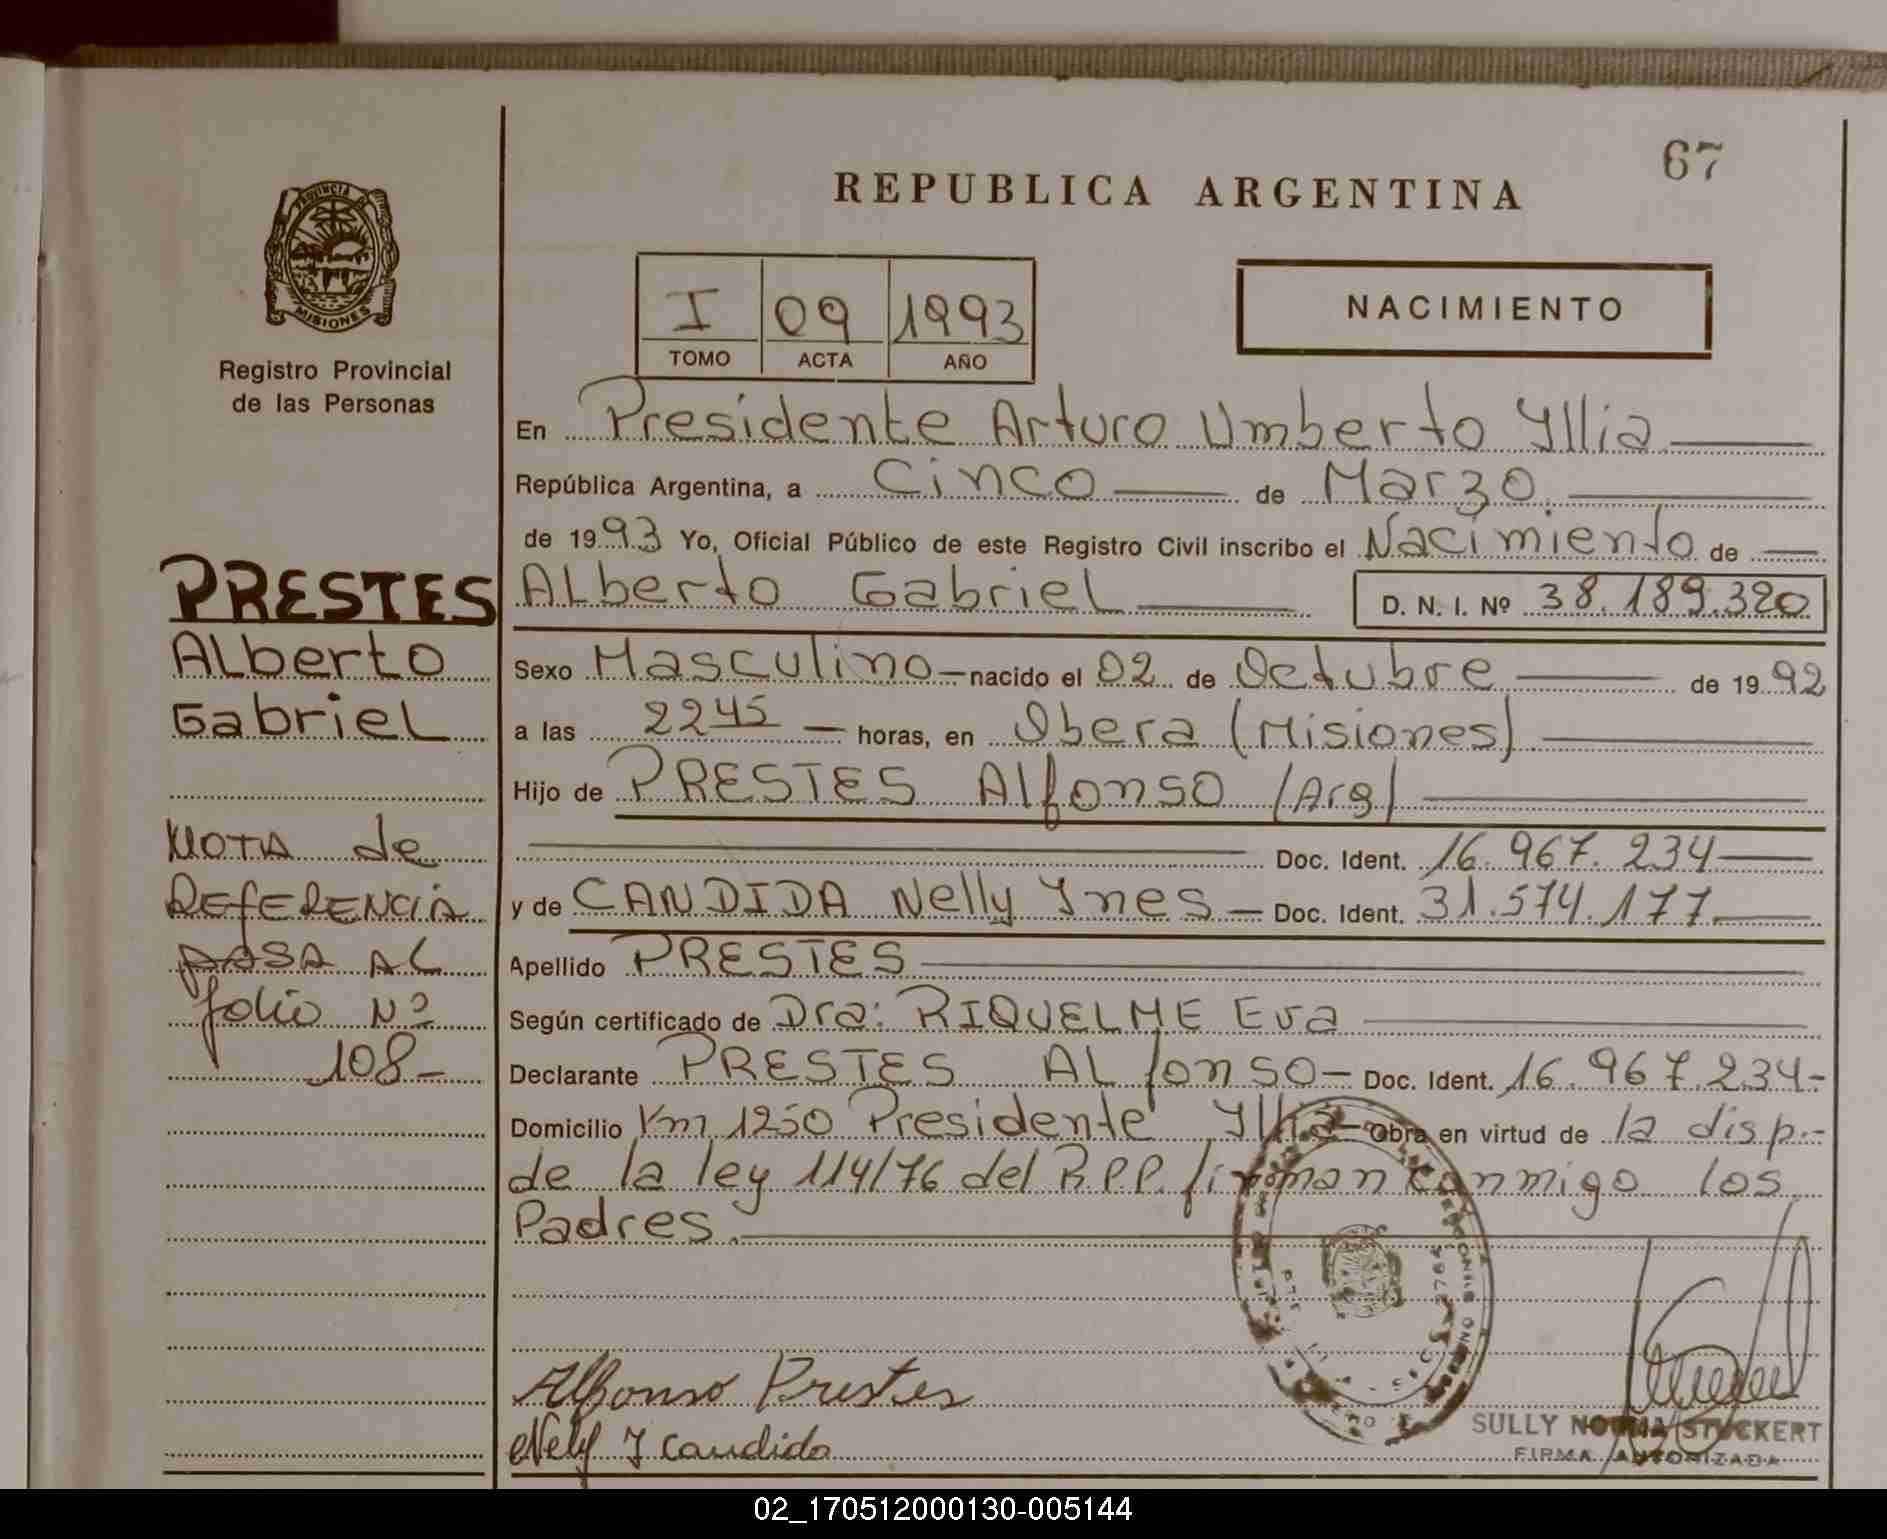 67
REPUBLICA ARGENTINA
PROVINCIA DE
MISIONES
Registro Provincial
de las Personas
I 09 1993
TOMO ACTA AÑO
NACIMIENTO
En Presidente Arturo Umberto Yllia
República Argentina, a Cinco de Marzo
de 1993 Yo, Oficial Público de este Registro Civil inscribo el Nacimiento de
Alberto Gabriel D. N. I. Nº 38.189.320
PRESTES
Alberto
Gabriel
Sexo Masculino nacido el 02 de Octubre de 1992
a las 2245 horas, en Obera (Misiones)
Hijo de PRESTES Alfonso (Arg)
Doc. Ident. 16.967.234
y de CANDIDA Nelly Ynes Doc. Ident. 31.574.177
NOTA de
REFERENCIA
PASA AL
folio Nº
108-
Apellido PRESTES
Según certificado de Dra: RIQUELME Eva
Declarante PRESTES ALfonso Doc. Ident. 16.967.234-
Domicilio Km 1250 Presidente Yllia Obra en virtud de la disp.-
de la ley 114/76 del R.P.P. firman conmigo los
Padres.
Alfonso Prestes
Nely Y Candida
SULLY NORMA STUCKERT
FIRMA AUTORIZADA
02_170512000130-005144